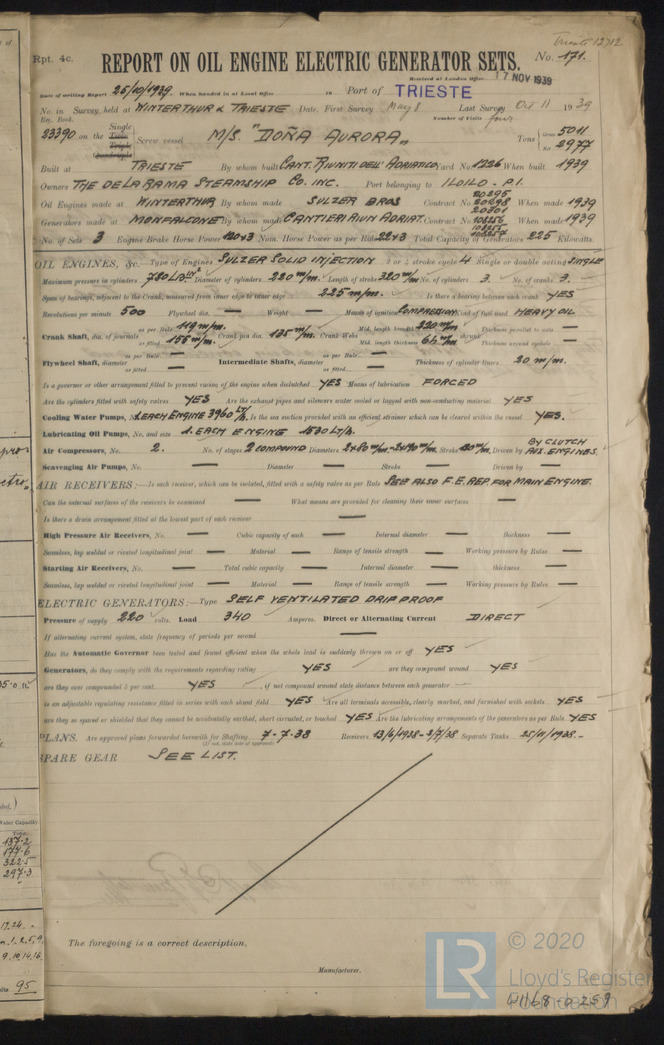 Trieste 12712
Rpt. 4c. REPORT ON OIL ENGINE ELECTRIC GENERATOR SETS. No. 171.
Received at London Office 17 NOV 1939
Date of writing Report 25/10/1939. When handed in at Local Office 19 Port of TRIESTE
No. in Survey held at WINTERTHUR & TRIESTE Date, First Survey May 8 Last Survey Oct 11 1939
Reg. Book. Number of Visits four
23390 on the Single Twin Triple Quadruple Screw vessel M/S. "DOÑA AURORA„ Tons Gross 5011 Net 2977
Built at TRIESTE By whom built CANT. RIUNITI DELL' ADRIATICO Yard No. 1226 When built 1939
Owners THE DE LA RAMA STEAMSHIP CO. INC. Port belonging to ILOILO - P.I.
Oil Engines made at WINTERTHUR By whom made SULZER BROS Contract No. 20295 20298 20301 When made 1939
Generators made at MONFALCONE By whom made CANTIERI RIUN ADRIAT Contract No. When made 1939
No. of Sets 3 Engine Brake Horse Power 120×3 Nom. Horse Power as per Rule 22×3 Total Capacity of Generators 225 Kilowatts.
OIL ENGINES, &c. Type of Engines SULZER SOLID INJECTION 2 or 4 stroke cycle 4 Single or double acting SINGLE
Maximum pressure in cylinders 780 LBS/□" Diameter of cylinders 220 m/m. Length of stroke 320 m/m No. of cylinders 3. No. of cranks 3.
Span of bearings, adjacent to the Crank, measured from inner edge to inner edge 225 m/m. Is there a bearing between each crank YES
Revolutions per minute 500 Flywheel dia. — Weight — Means of ignition COMPRESSION Kind of fuel used HEAVY OIL
Crank Shaft, dia. of journals as per Rule 119 m/m. as fitted 155 m/m. Crank pin dia. 135 m/m. Crank Webs Mid. length breadth 220 m/m Mid. length thickness 65 m/m shrunk Thickness parallel to axis — Thickness around eyehole —
Flywheel Shaft, diameter as per Rule — as fitted — Intermediate Shafts, diameter as per Rule — as fitted — Thickness of cylinder liners 20 m/m.
Is a governor or other arrangement fitted to prevent racing of the engine when declutched YES Means of lubrication FORCED
Are the cylinders fitted with safety valves YES Are the exhaust pipes and silencers water cooled or lagged with non-conducting material YES
Cooling Water Pumps, No. 1. EACH ENGINE 3960 LT/h. Is the sea suction provided with an efficient strainer which can be cleared within the vessel YES.
Lubricating Oil Pumps, No. and size 1. EACH ENGINE 1530 LT/h.
Air Compressors, No. 2. No. of stages 2 COMPOUND Diameters Stroke Driven by BY CLUTCH AUX. ENGINES.
Scavenging Air Pumps, No. — Diameter — Stroke — Driven by —
AIR RECEIVERS:—Is each receiver, which can be isolated, fitted with a safety valve as per Rule SEE ALSO F.E. REP. FOR MAIN ENGINE.
Can the internal surfaces of the receivers be examined — What means are provided for cleaning their inner surfaces —
Is there a drain arrangement fitted at the lowest part of each receiver —
High Pressure Air Receivers, No. — Cubic capacity of each — Internal diameter — thickness —
Seamless, lap welded or riveted longitudinal joint — Material — Range of tensile strength — Working pressure by Rules —
Starting Air Receivers, No. — Total cubic capacity — Internal diameter — thickness —
Seamless, lap welded or riveted longitudinal joint — Material — Range of tensile strength — Working pressure by Rules —
ELECTRIC GENERATORS:—Type SELF VENTILATED DRIP PROOF
Pressure of supply 220 volts. Load 340 Amperes. Direct or Alternating Current DIRECT
If alternating current system, state frequency of periods per second —
Has the Automatic Governor been tested and found efficient when the whole load is suddenly thrown on or off YES
Generators, do they comply with the requirements regarding rating YES are they compound wound YES
are they over compounded 5 per cent. YES, if not compound wound state distance between each generator —
Is an adjustable regulating resistance fitted in series with each shunt field YES Are all terminals accessible, clearly marked, and furnished with sockets YES
are they so spaced or shielded that they cannot be accidentally earthed, short circuited, or touched YES Are the lubricating arrangements of the generators as per Rule YES
PLANS. Are approved plans forwarded herewith for Shafting 7-7-38 Receivers 13/6/1938-2/7/38 Separate Tanks 25/11/1938.-
(If not, state date of approval)
SPARE GEAR SEE LIST.
The foregoing is a correct description,
Manufacturer.
© 2020
Lloyd's Register
Foundation
W1168-0259
LR
Water Capacity
137.2
177.6
322.5
297.3
17.24.
9.10.14.16.
95